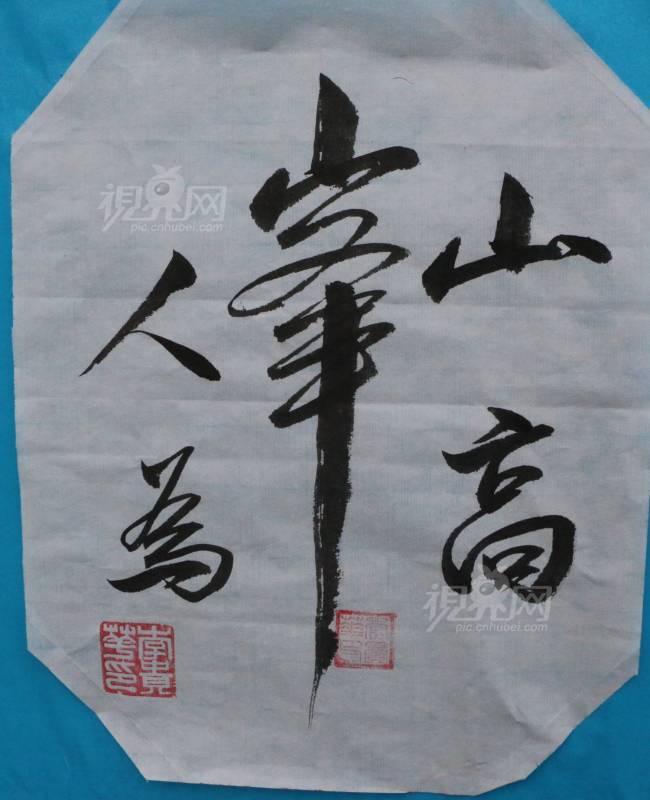 山高
峯
人為
視界网
pic.cnhubei.com
視界网
pic.cnhubei.com